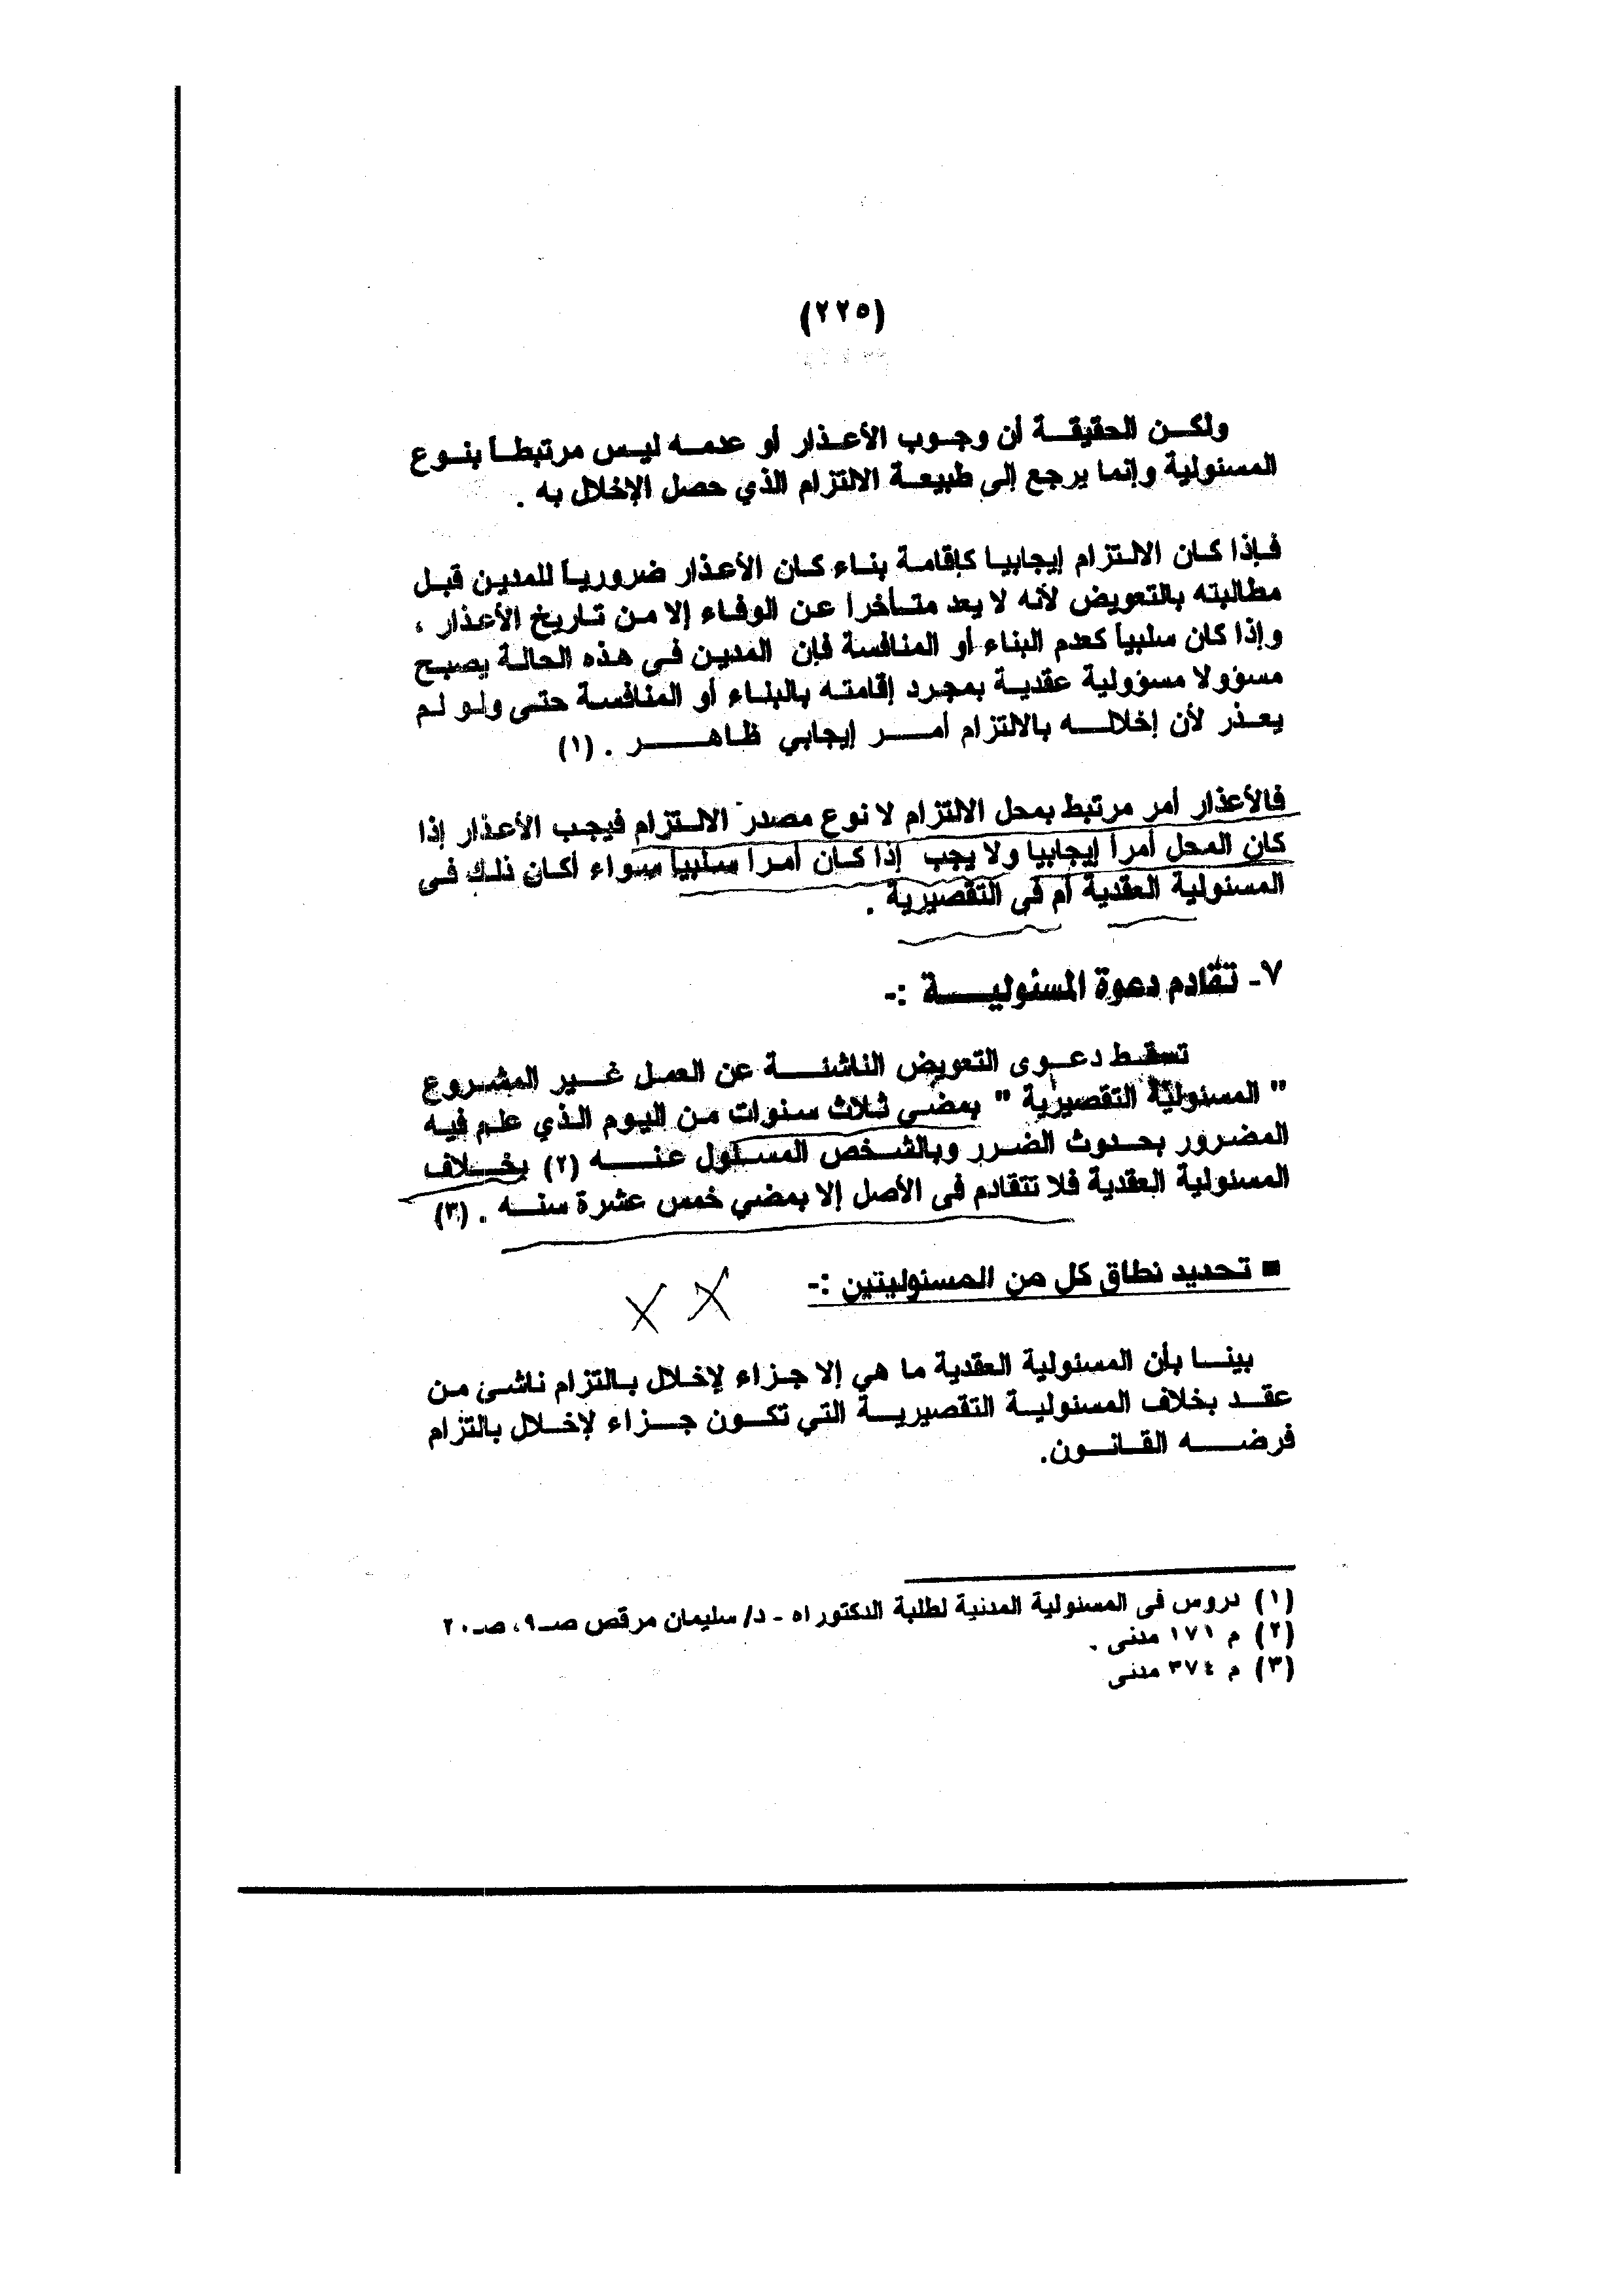 (٢٢٥)
ولكن الحقيقة أن وجوب الأعذار أو عدمه ليس مرتبطاً بنوع
المسئولية وإنما يرجع إلى طبيعة الالتزام الذي حصل الإخلال به .
فإذا كان الالتزام إيجابيا كإقامة بناء كان الأعذار ضرورياً للمدين قبل
مطالبته بالتعويض لأنه لا يعد متأخراً عن الوفاء إلا من تاريخ الأعذار ،
وإذا كان سلبياً كعدم البناء أو المنافسة فإن المدين فى هذه الحالة يصبح
مسؤولا مسؤولية عقدية بمجرد إقامته بالبناء أو المنافسة حتى ولو لم
يعذر لأن إخلاله بالالتزام أمر إيجابي ظاهر . (١)
فالأعذار أمر مرتبط بمحل الالتزام لا نوع مصدر الالتزام فيجب الأعذار إذا
كان المحل أمراً إيجابيا ولا يجب إذا كان أمراً سلبياً سواء أكان ذلك فى
المسئولية العقدية أم فى التقصيرية .
٧- تقادم دعوة المسئولية :-
تسقط دعوى التعويض الناشئة عن العمل غير المشروع
" المسئولية التقصيرية " بمضى ثلاث سنوات من اليوم الذي علم فيه
المضرور بحدوث الضرر وبالشخص المسئول عنه (٢) بخلاف
المسئولية العقدية فلا تتقادم فى الأصل إلا بمضي خمس عشرة سنه . (٣)
■ تحديد نطاق كل من المسئوليتين :-
بينا بأن المسئولية العقدية ما هي إلا جزاء لإخلال بالتزام ناشئ من
عقد بخلاف المسئولية التقصيرية التي تكون جزاء لإخلال بالتزام
فرضه القانون.
(١) دروس فى المسئولية المدنية لطلبة الدكتوراه - د/ سليمان مرقص صـ٩، صـ٢٠
(٢) م ١٧١ مدنى .
(٣) م ٣٧٤ مدنى